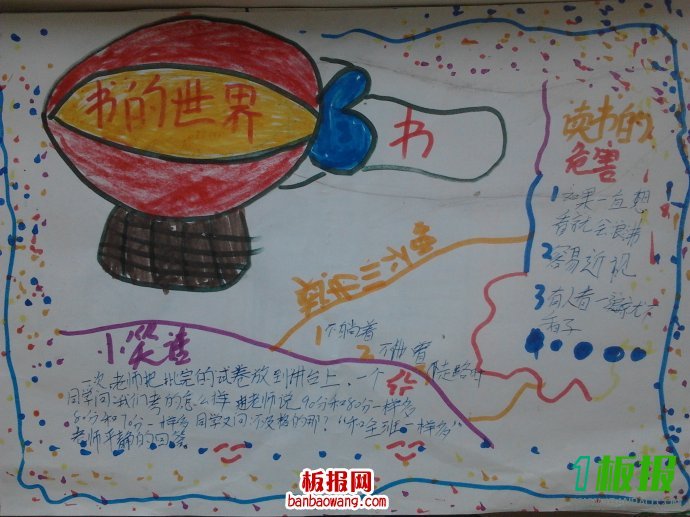 书的世界
书
读书的
危害
1 如果一直想
看就会
2 容易近视
3 有人看一
小笑话
1 不躺着
2
一次老师把批完的试卷放到讲台上,一个
同学问我们考的怎么样 老师说90分和80分一样多
80分和70分一样多 同学又问不及格的那?"和全班一样多"
老师平静的回答
板报网
banbaowang.com
1板报